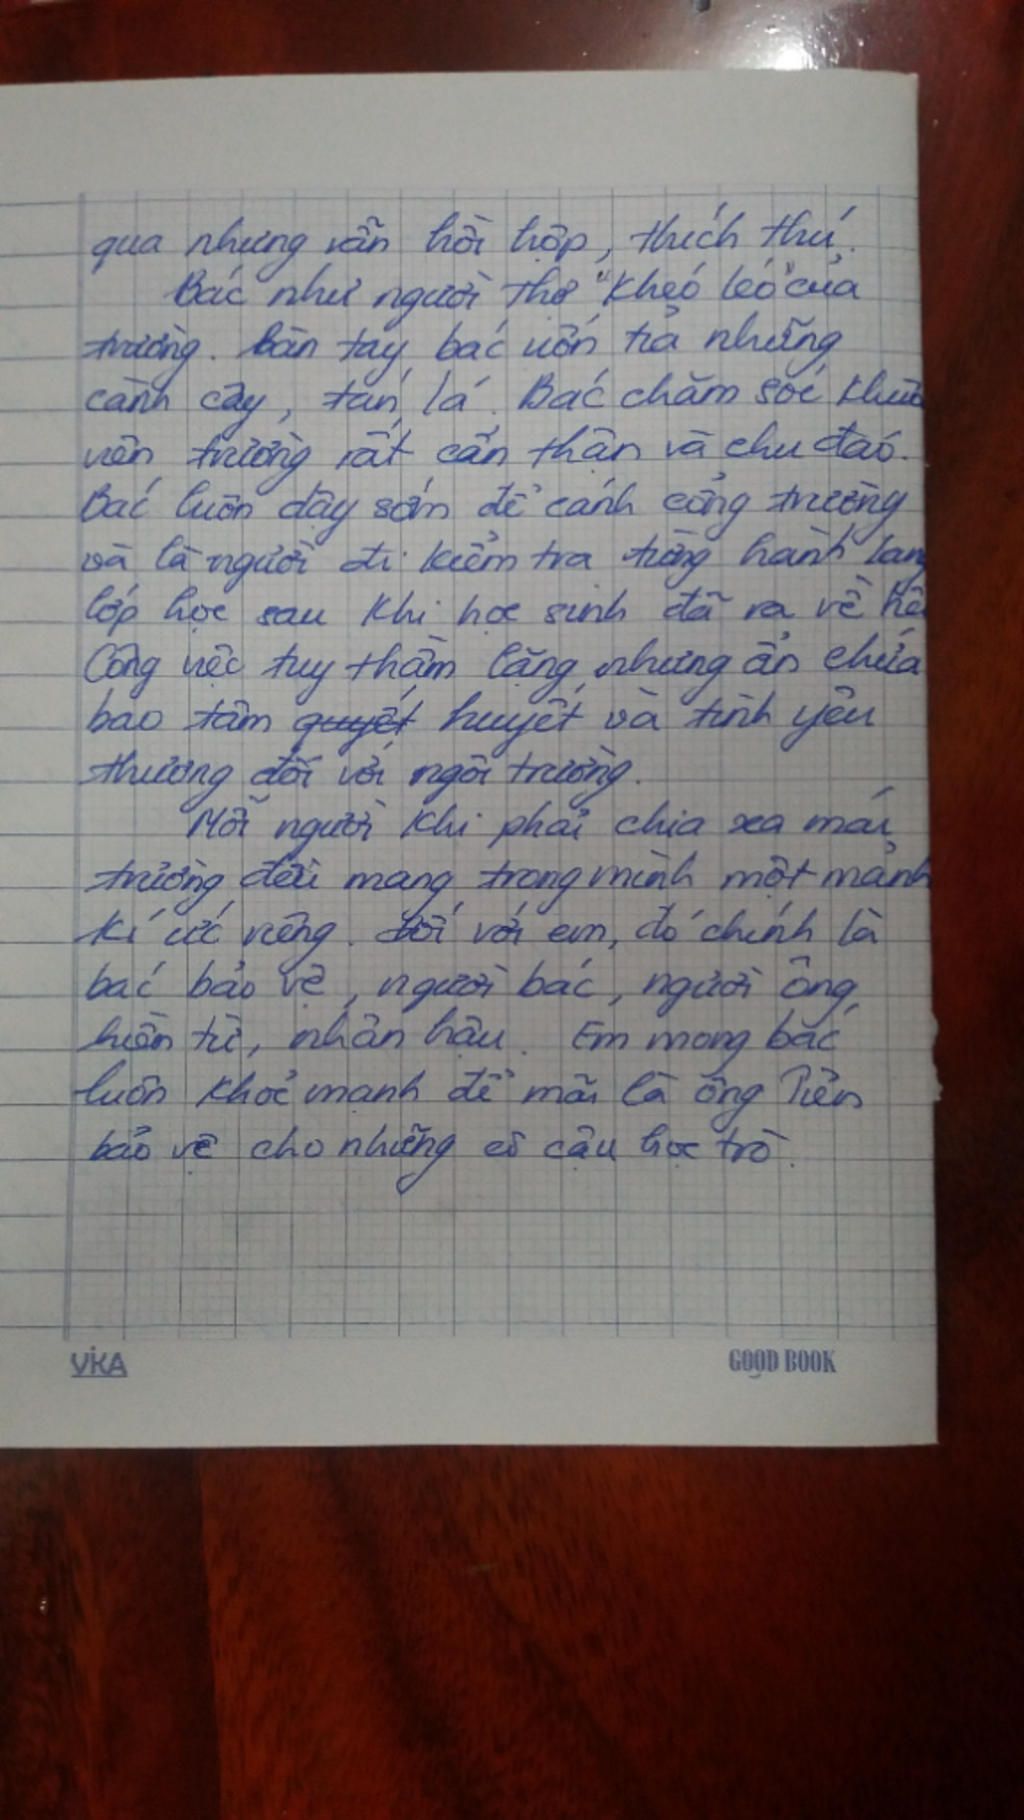 qua nhưng vẫn hồi hộp, thích thú.
Bác như người thợ "khéo léo" của
trường. Bàn tay bác uốn tỉa những
cành cây, tán lá. Bác chăm sóc khuôn
viên trường rất cẩn thận và chu đáo.
Bác luôn dậy sớm để canh cổng trường
và là người đi kiểm tra từng hành lang
lớp học sau khi học sinh đã ra về hế
Công việc tuy thầm lặng nhưng ẩn chứa
bao tâm quyết huyết và tình yêu
thương đối với ngôi trường.
Mỗi người khi phải chia xa mái
trường đều mang trong mình một mảnh
kí ức riêng. Đối với em, đó chính là
bác bảo vệ, người bác, người ông
hiền từ, nhân hậu. Em mong bác
luôn khoẻ mạnh để mãi là ông Tiên
bảo vệ cho những cô cậu học trò.
VIKA
GOOD BOOK